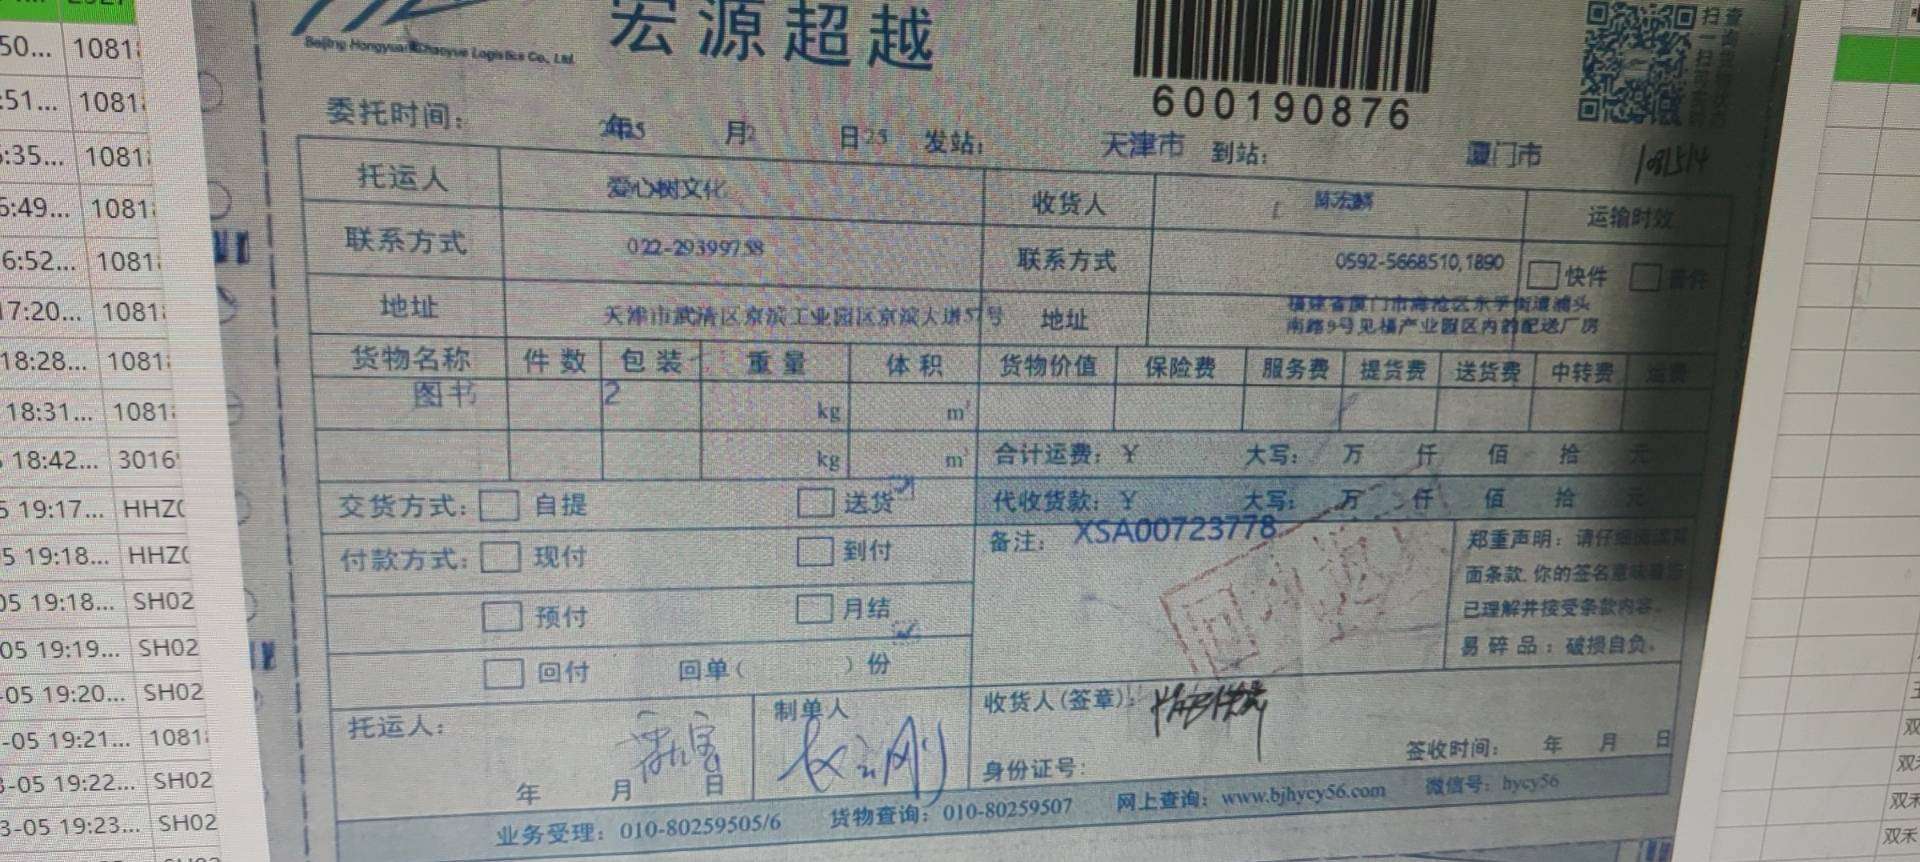 宏源超越
Beijing Hongyuan Chaoyue Logistics Co., Ltd.
600190876
扫一扫
委托时间： 2025年 2月 25日 发站： 天津市 到站： 厦门市
托运人 爱心树文化 收货人 运输时效
联系方式 022-29399758 联系方式 0592-5668510,1890 快件 普件
地址 天津市武清区京滨工业园区京滨大道57号 地址 福建省厦门市海沧区东孚街道浦头
南路9号见福产业园区内韵配送厂房
货物名称 件数 包装 重量 体积 货物价值 保险费 服务费 提货费 送货费 中转费 运费
图书 2 kg m³
kg m³ 合计运费：￥ 大写： 万 仟 佰 拾 元
交货方式： 自提 送货 代收货款：￥ 大写： 万 仟 佰 拾 元
付款方式： 现付 到付 备注： XSA00723778
预付 月结
回付 回单( )份
郑重声明：请仔细阅读背
面条款，你的签名意味着您
已理解并接受条款内容。
易碎品：破损自负。
托运人： 制单人 收货人(签章)：
年 月 日 身份证号： 签收时间： 年 月 日
业务受理：010-80259505/6 货物查询：010-80259507 网上查询：www.bjhycy56.com 微信号：hycy56
50... 1081
:51... 1081
:35... 1081
:49... 1081
6:52... 1081
17:20... 1081
18:28... 1081
18:31... 1081
18:42... 3016
5 19:17... HHZ0
5 19:18... HHZ0
05 19:18... SH02
05 19:19... SH02
-05 19:20... SH02
-05 19:21... 1081
3-05 19:22... SH02
3-05 19:23... SH02
双
双禾
双禾
双禾